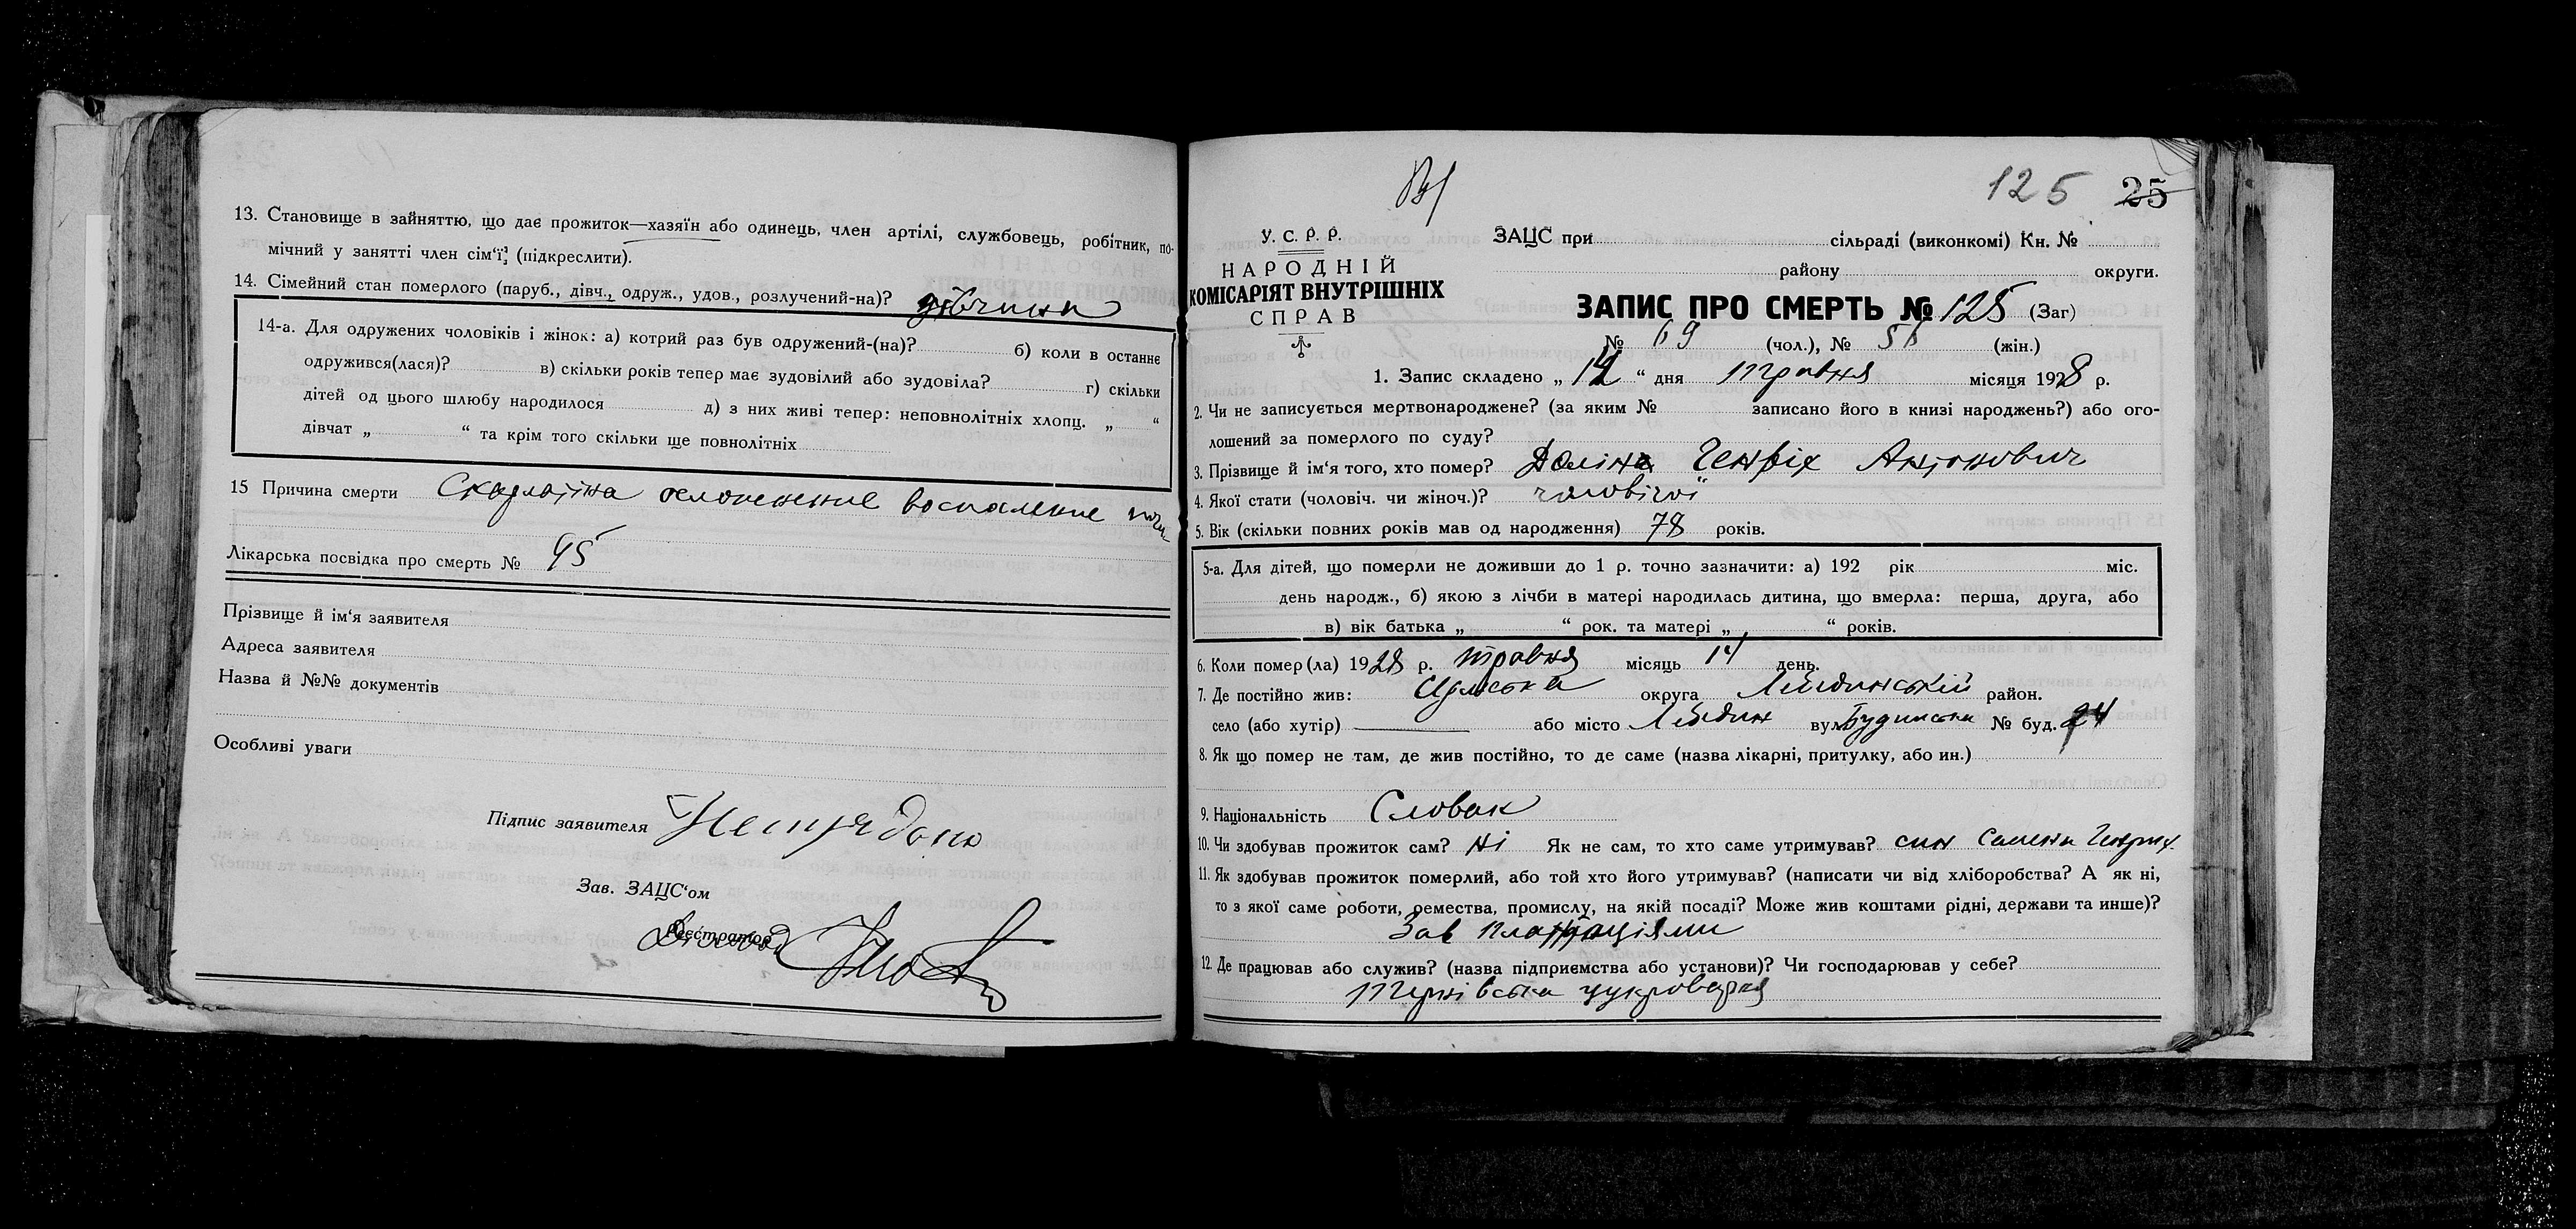 13. Становище в зайняттю, що дає прожиток—хазяїн або одинець, член артілі, службовець, робітник, по-
мічний у занятті член сім'ї; (підкреслити).
14. Сімейний стан померлого (паруб., дівч., одруж., удов., розлучений-на)? дівчина
14-а. Для одружених чоловіків і жінок: а) котрий раз був одружений-(на)? б) коли в останнє
одружився(лася)? в) скільки років тепер має зудовілий або зудовіла? г) скільки
дітей од цього шлюбу народилося д) з них живі тепер: неповнолітніх хлопц. „ “
дівчат „ “ та крім того скільки ще повнолітніх
15 Причина смерти Скарлатина осложнение воспаление
Лікарська посвідка про смерть № 95
Прізвище й ім'я заявителя
Адреса заявителя
Назва й №№ документів
Особливі уваги
Підпис заявителя
Зав. ЗАЦС'ом
Реєстратор
125 25
У. С. Р. Р.
НАРОДНІЙ
КОМІСАРІЯТ ВНУТРІШНІХ
СПРАВ
ЗАЦС при сільраді (виконкомі) Кн. №
району округи.
ЗАПИС ПРО СМЕРТЬ № 125 (Заг)
№ 69 (чол.), № 56 (жін.)
1. Запис складено „ 14 “ дня травня місяця 1928 р.
2. Чи не записується мертвонароджене? (за яким № записано його в книзі народжень?) або ого-
лошений за померлого по суду?
3. Прізвище й ім'я того, хто помер? Доліна Генріх Антонович
4. Якої стати (чоловіч. чи жіноч.)? чоловічої
5. Вік (скільки повних років мав од народження) 78 років.
5-а. Для дітей, що померли не доживши до 1 р. точно зазначити: а) 192 рік міс.
день народж., б) якою з лічби в матері народилась дитина, що вмерла: перша, друга, або
в) вік батька „ “ рок. та матері „ “ років.
6. Коли помер(ла) 1928 р. травня місяць 14 день.
7. Де постійно жив: округа Лебединський район.
село (або хутір) або місто Лебедин вул. № буд. 24
8. Як що помер не там, де жив постійно, то де саме (назва лікарні, притулку, або ин.)
9. Національність Словак
10. Чи здобував прожиток сам? Ні Як не сам, то хто саме утримував? син
11. Як здобував прожиток померлий, або той хто його утримував? (написати чи від хліборобства? А як ні,
то з якої саме роботи, ремества, промислу, на якій посаді? Може жив коштами рідні, держави та инше)?
Зав плантаціями
12. Де працював або служив? (назва підприємства або установи)? Чи господарював у себе?
Тернівська цукроварня